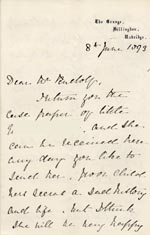 The Grange,
Hillingdon,
Uxbridge.
8th June 1893
Dear Mr Rudolf,
I return you the
case paper of little
E and she
can be received here
any day you like to
send her. Poor Child
hers seems a sad history
and life. But I think
she will be very happy